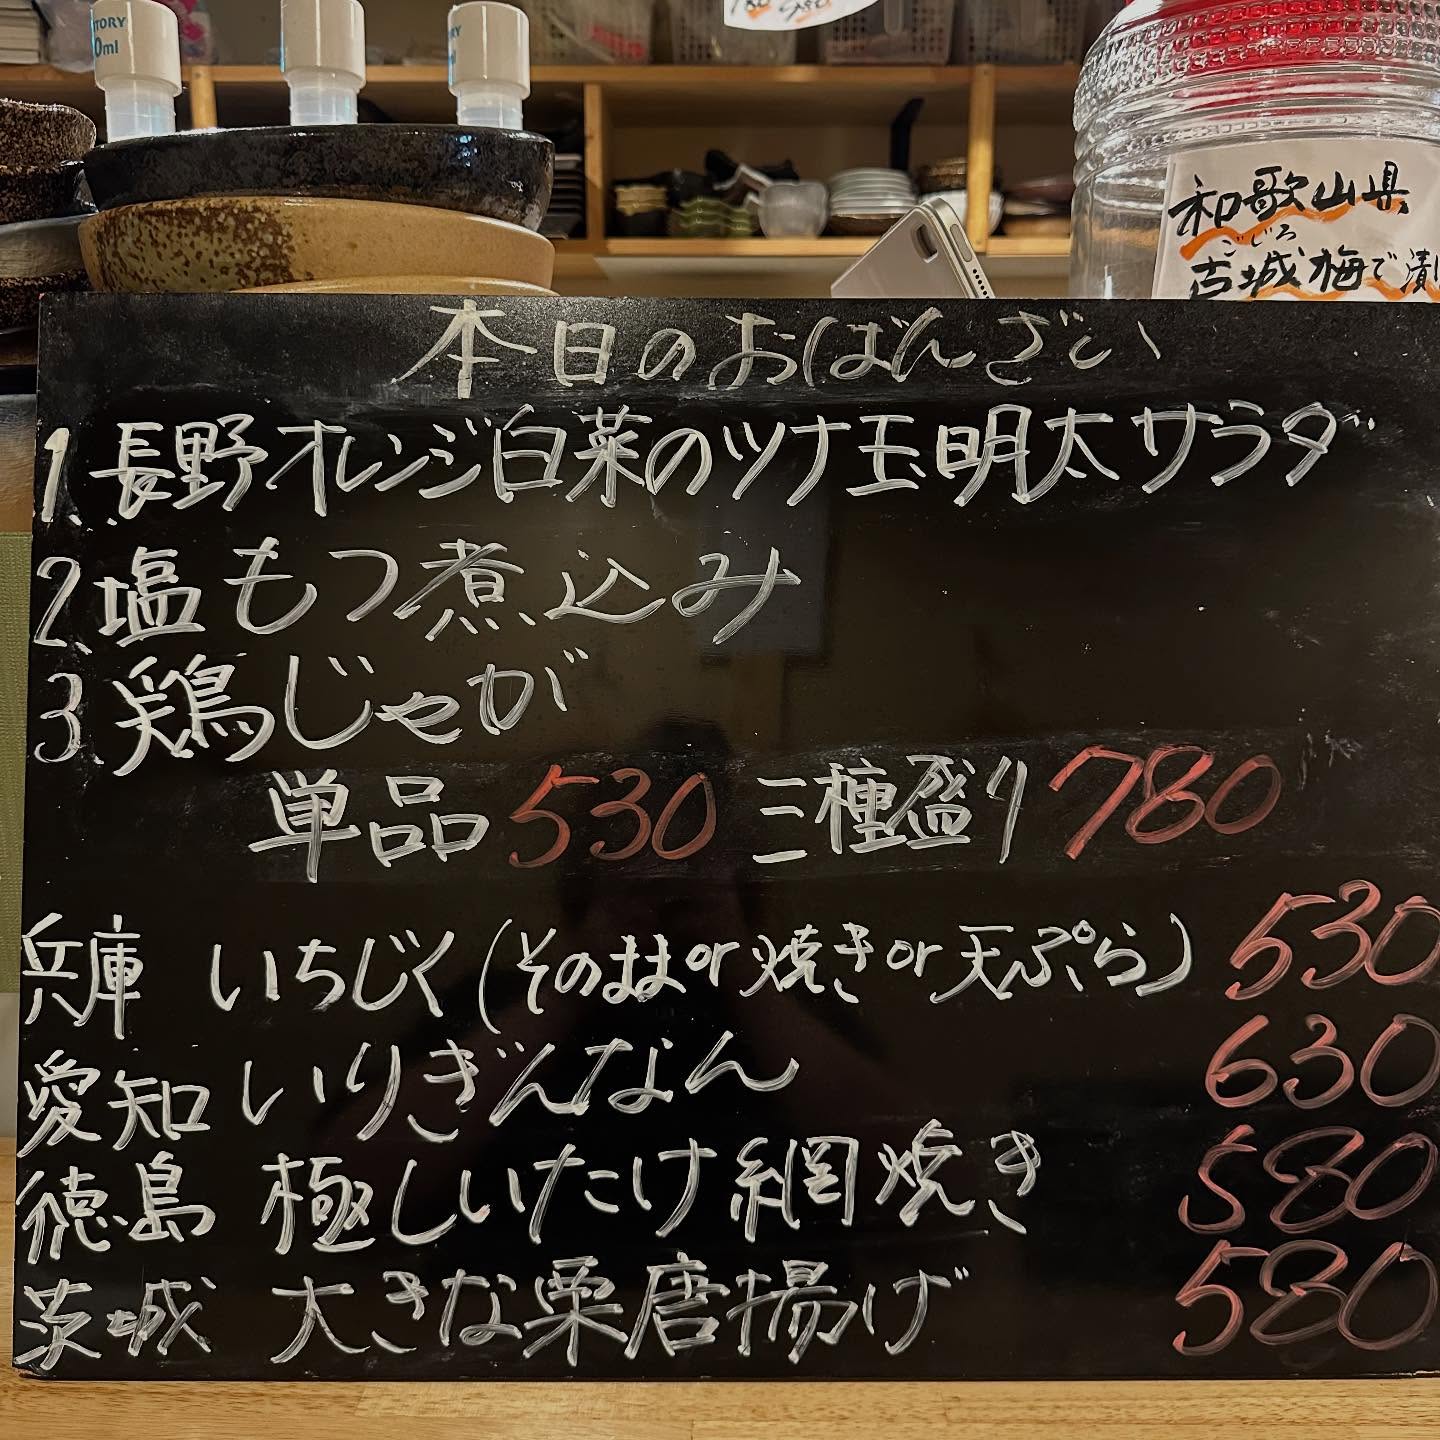 TORY
0ml
和歌山県
こじろ
古城梅で漬
本日のおばんざい
1. 長野オレンジ白菜のツナ玉明太サラダ
2. 塩もつ煮込み
3. 鶏じゃが
単品 530 三種盛り 780
兵庫 いちじく(そのままor焼きor天ぷら) 530
愛知 いりぎんなん 630
徳島 極しいたけ網焼き 580
茨城 大きな栗唐揚げ 580